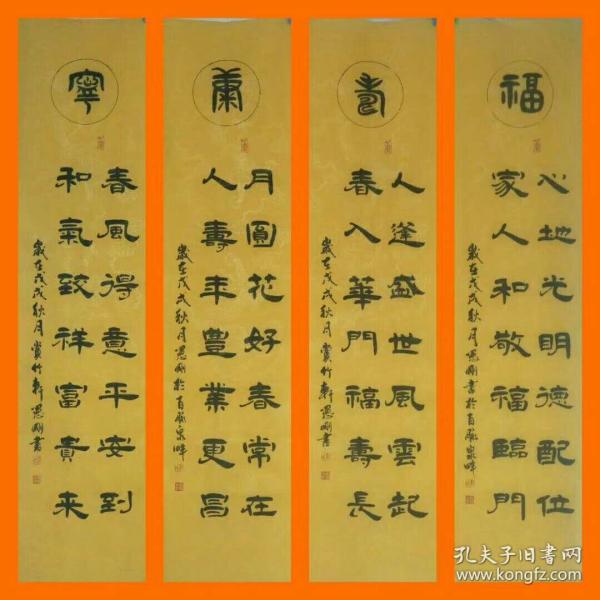 福
心地光明德配位
家人和敬福臨門
歲在戊戌秋月恩剛書於百脈泉畔
壽
人逢盛世風雲起
春入華門福壽長
歲在戊戌秋月賞竹軒恩剛書
康
月圓花好春常在
人壽年豊業更昌
歲在戊戌秋月恩剛於百脈泉畔
寧
春風得意平安到
和氣致祥富貴来
歲在戊戌秋月賞竹軒恩剛書
孔夫子旧书网
www.kongfz.com